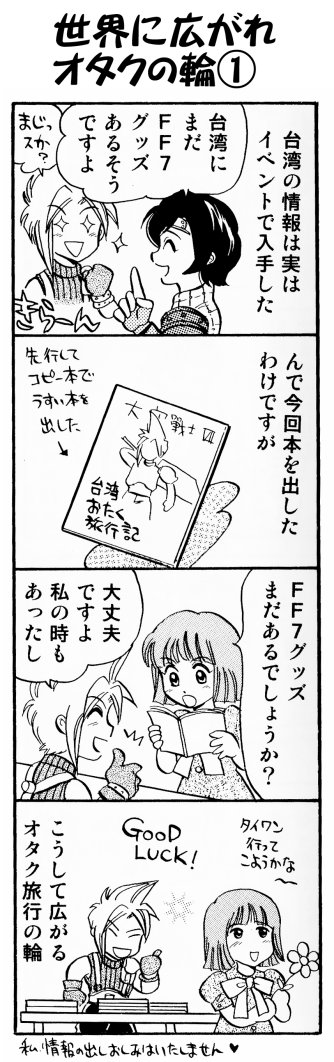 世界に広がれ
オタクの輪①
台湾の情報は実は
イベントで入手した
台湾に
まだ
FF7
グッズ
あるそう
ですよ
まじっ
スか?
きらーん
んで今回本を出した
わけですが
先行して
コピー本で
うすい本を
出した
台湾
おたく
旅行記
FF7グッズ
まだあるでしょうか?
大丈夫
ですよ
私の時も
あったし
タイワン
行って
こようかな
GOOD
LUCK!
こうして広がる
オタク旅行の輪
私、情報の出しおしみはいたしません♥